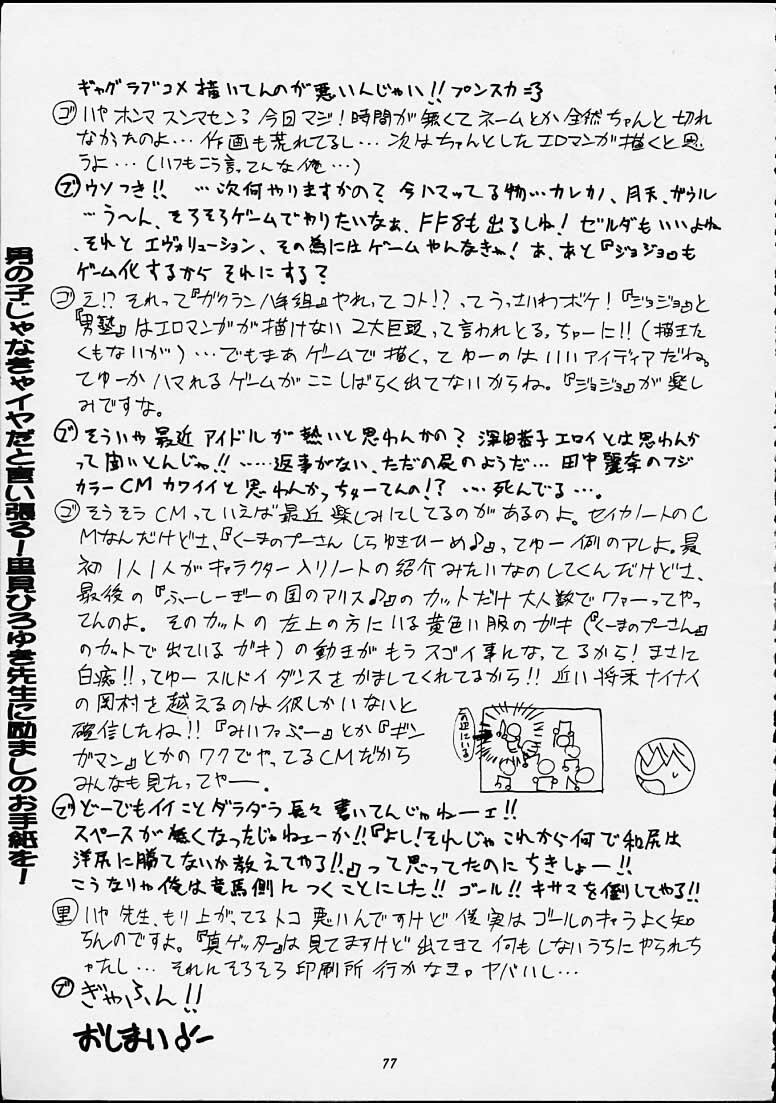 ギャグラブコメ描いてんのが悪いんじゃい!!プンスカ=3
ゴ いや ホンマ スンマセン?今回マジ!時間が無くてネームとか全然ちゃんと切れ
なかったのよ…作画も荒れてるし…次はちゃんとしたエロマンガ描くと思
うよ…(いつもこう言ってんな俺…)
ブ ウソつき!!…次何やりますかの?今ハマッてる物…カレカノ、月天、ガウル
…う〜ん、そろそろゲームでやりたいなぁ、FF8も出るしね!ゼルダもいいよね
、それとエヴォリューション、その為にはゲームやんなきゃ!あ、あと『ジョジョ』も
ゲーム化するからそれにする?
ゴ え!?それって『ガクラン八年組』やれってコト!?ってうっさいわボケ!『ジョジョ』と
『男塾』はエロマンガが描けない2大巨頭って言われとる,ちゅーに!!(描きた
くもないが)…でもまあゲームで描くってゆーのはいいアイディアだね。
てゆーかハマれるゲームがここしばらく出てないからね。『ジョジョ』が楽し
みですな。
ブ そういや最近アイドルが熱いと思わんかの?深田恭子エロイとは思わんか
って聞いとんじゃ!!……返事がない、ただの屍のようだ…田中麗奈のフジ
カラーCMカワイイと思わんかっちゅーてんの!?…死んでる…。
ゴ そうそうCMっていえば最近楽しみにしてるのがあるのよ。セイカノートのC
Mなんだけどさ、『くーまのプーさん しらゆきひーめ♪』ってゆー例のアレよ。最
初1人1人がキャラクター入りノートの紹介みたいなのしてくんだけどさ、
最後の『ふーしーぎーの国のアリス♪』のカットだけ大人数でワァーってやっ
てんのよ。そのカットの左上の方にいる黄色い服のガキ(『くーまのプーさん』
のカットで出ているガキ)の動きがもうスゴイ事になってるから!まさに
白痴!!ってゆースルドイダンスをかましてくれてるから!!近い将来ナイナイ
の岡村を越えるのは彼しかいないと
確信したね!!『みいファぷー』とか『ギン
ガマン』とかのワクでやってるCMだから
みんなも見たってやー。
この辺にいる
ブ どーでもイイことダラダラ長々書いてんじゃねーェ!!
スペースが無くなったじゃねェーか!!『よし!それじゃこれから何で和尻は
洋尻に勝てないか教えてやる!!』って思ってたのにちきしょー!!
こうなりゃ俺は竜馬側につくことにした!!ゴール!!キサマを倒してやる!!
里 いや先生、もり上がってるトコ悪いんですけど僕実はゴールのキャラよく知
らんのですよ。『真ゲッター』は見てますけど出てきて何もしないうちにやられち
ゃたし…それにそろそろ印刷所行かなきゃヤバいし…
ブ ぎゃふん!!
おしまい♪ー
男の子じゃなきゃイヤだと言い張る!里見ひろゆき先生に励ましのお手紙を!
77